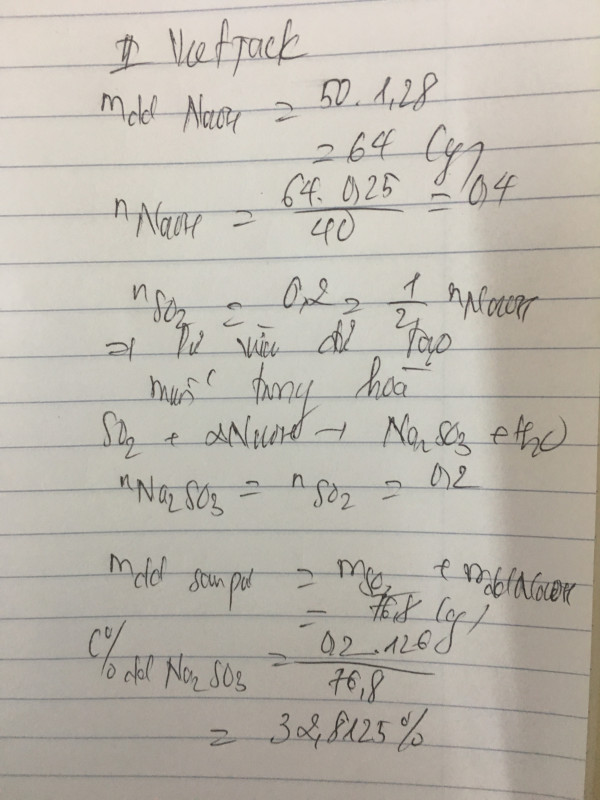 VietJack
mdd NaOH = 50.1,28
= 64 (g)
nNaOH = 64.0,25/40 = 0,4
nSO2 = 0,2 = 1/2 nNaOH
=> Pư vừa đủ tạo
muối trung hoà
SO2 + 2NaOH → Na2SO3 + H2O
nNa2SO3 = nSO2 = 0,2
mdd sau pư = mSO2 + mddNaOH
= 76,8 (g)
C% dd Na2SO3 = 0,2.126/76,8
= 32,8125%